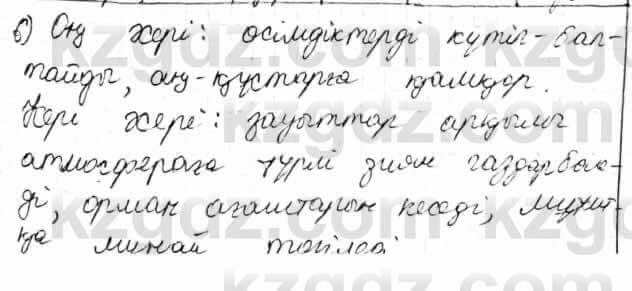 б) Оң жері: өсімдіктерді күтіп-бап-
тайды, аң-құстарға қамқор.
Кері жері: зауыттар арқылы
атмосфераға түрлі зиян газдар бөлі-
ді, орман ағаштарын кеседі, мұхит-
қа мұнай төгіледі
kzgdz.com